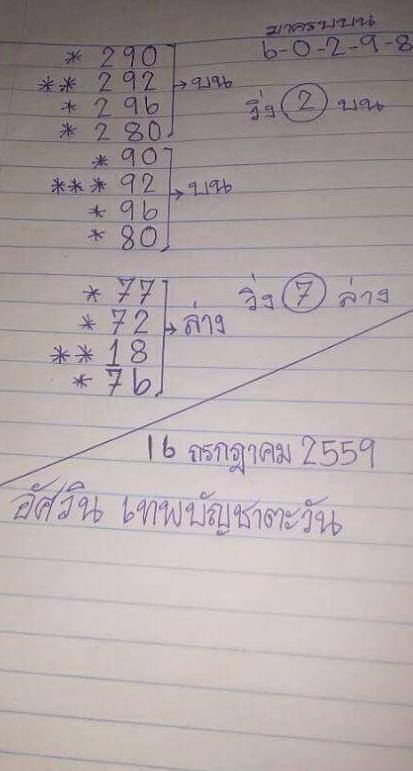 มาครบบน
6-0-2-9-8
* 290
** 292 → บน
* 296
* 280
วิ่ง 2 บน
* 90
*** 92 → บน
* 96
* 80
* 77
* 72 → ล่าง
** 18
* 76
วิ่ง 7 ล่าง
16 กรกฎาคม 2559
อัศวิน เทพบัญชาตะวัน